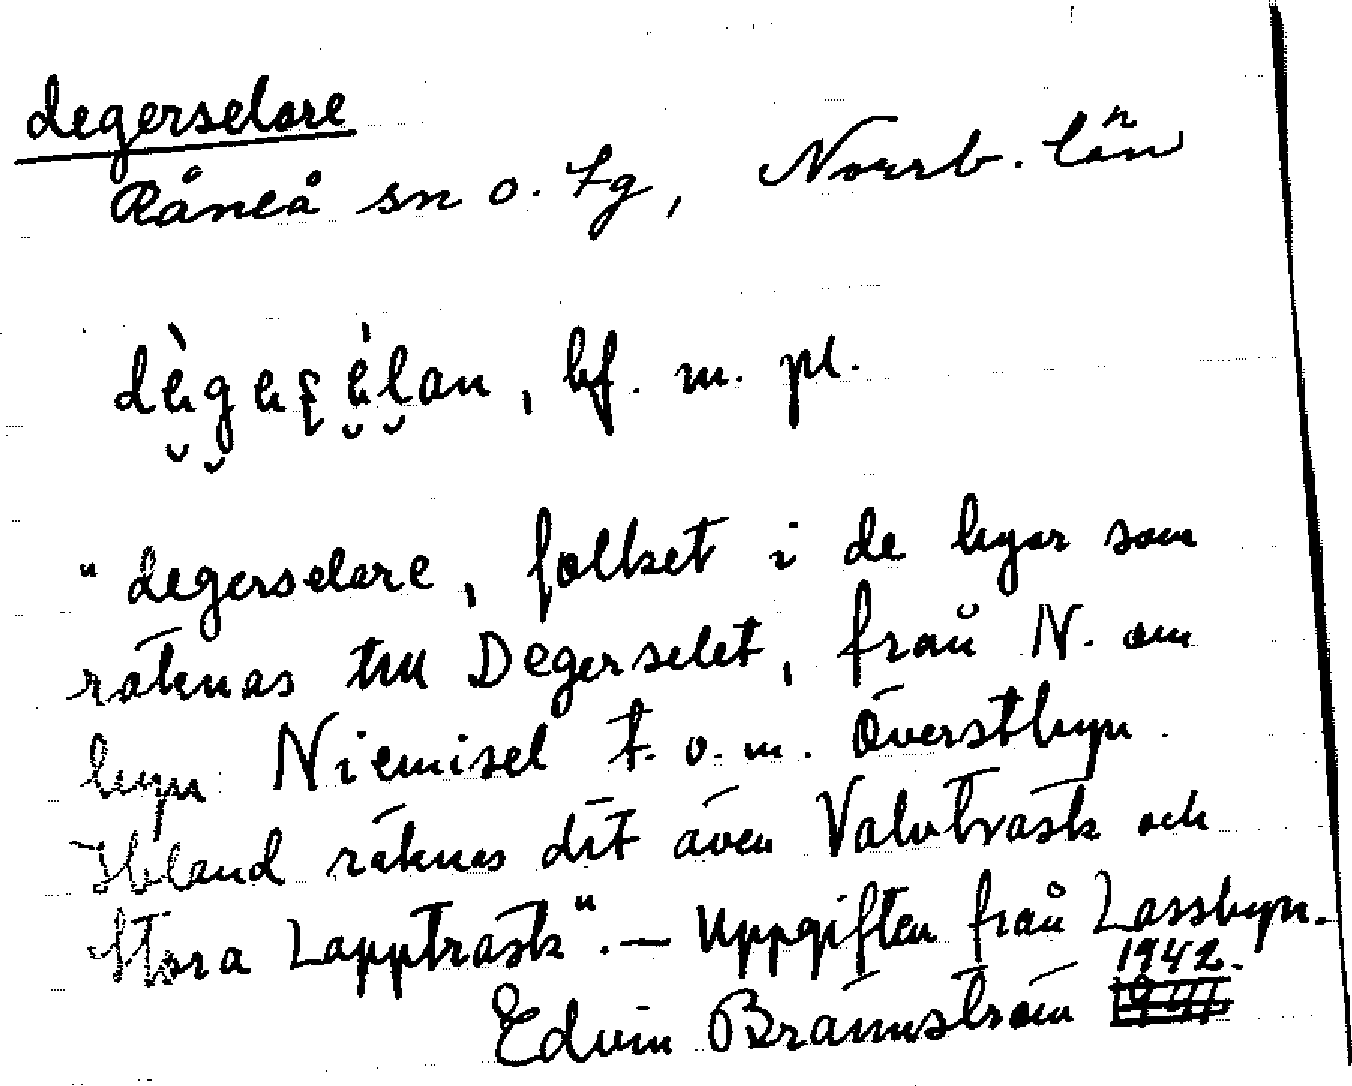 degerselare
Råneå sn o. tg, Norrb. län
bf. m. pl.
"degerselare, folket i de byar som
räknas till Degerselet, från N. om
byn Niemisel t. o. m. Överstbyn.
Ibland räknas dit även Valvträsk och
Stora Lappträsk". — Uppgiften från Lassbyn.
1942.
Edvin Brännström